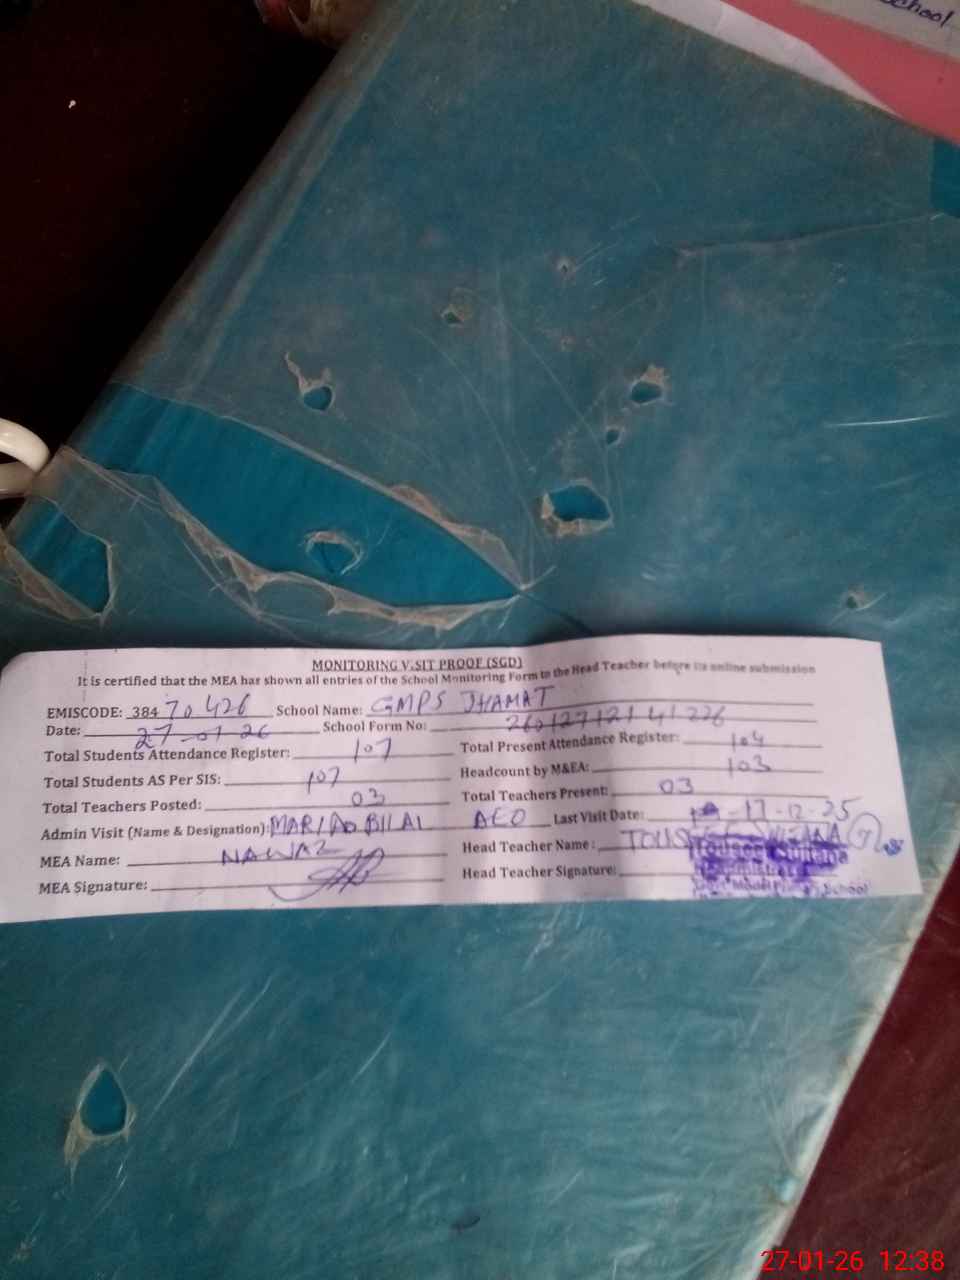 School
MONITORING VISIT PROOF (SGD)
It is certified that the MEA has shown all entries of the School Monitoring Form to the Head Teacher before its online submission
EMISCODE: 384 70426 School Name: GMPS JHAMAT
Date: 27-01-26 School Form No: 26012712141226
Total Students Attendance Register: 107 Total Present Attendance Register: 104
Total Students AS Per SIS: 107 Headcount by M&EA: 103
Total Teachers Posted: 03 Total Teachers Present: 03
Admin Visit (Name & Designation): BILAL AEO Last Visit Date: 17-12-25
MEA Name: NAWAZ Head Teacher Name:
Touseef Sultana
MEA Signature: Head Teacher Signature:
School
27-01-26 12:38